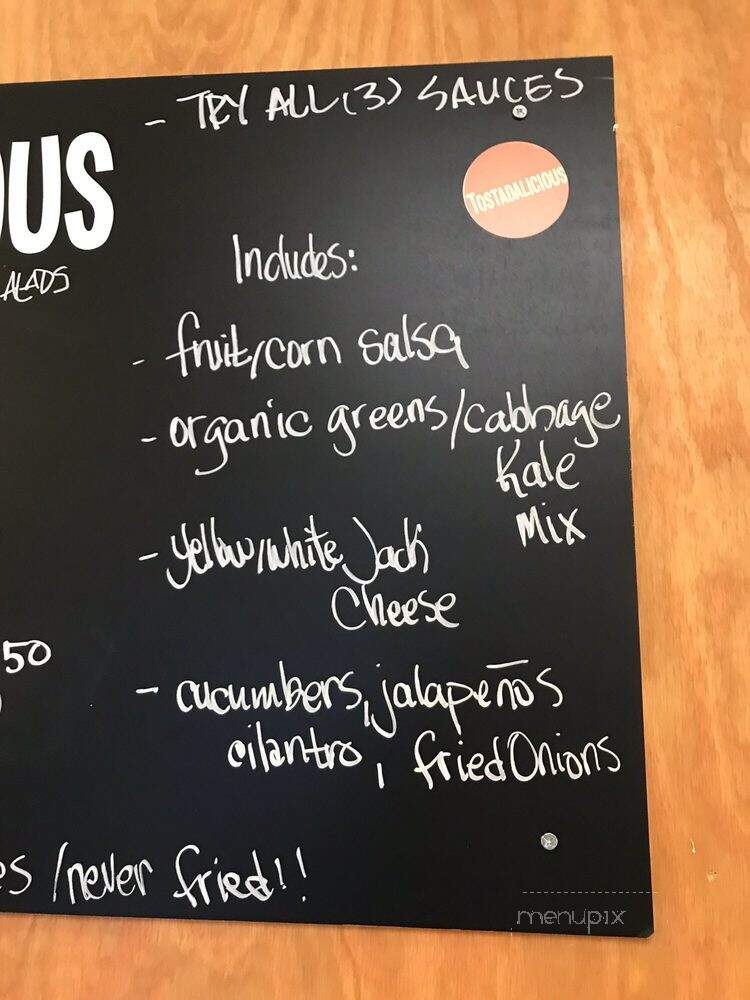 - TRY ALL (3) SAUCES
OUS
TOSTADALICIOUS
ALADS
Includes:
- fruit/corn salsa
- organic greens/cabbage
Kale
Mix
- yellow/white Jack
Cheese
50
- cucumbers, jalapeños
cilantro, fried Onions
es /never fried!!
menupix